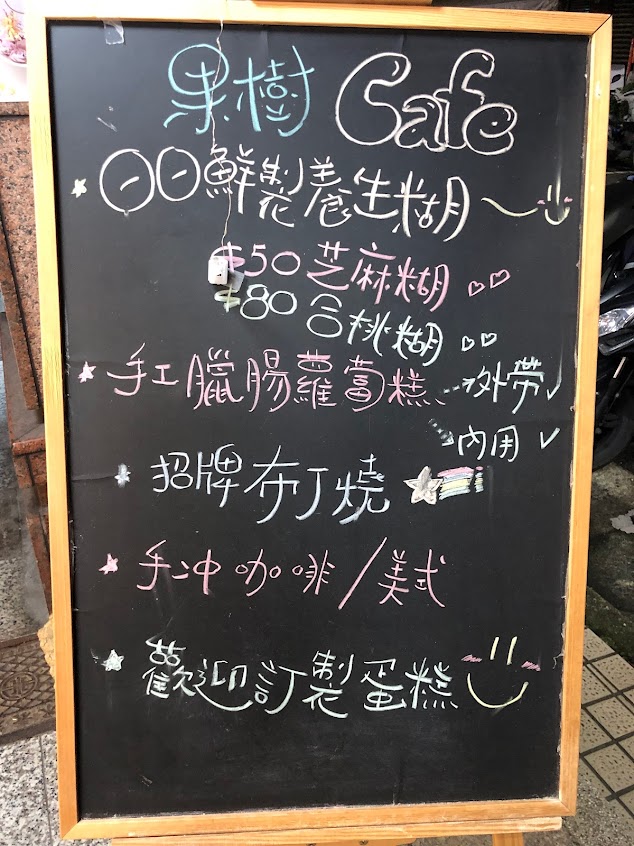 果樹 Cafe
日日鮮製養生糊
$50 芝麻糊
$80 合桃糊
手工臘腸蘿蔔糕 外帶✓
內用✓
招牌布丁燒
手沖咖啡/美式
歡迎訂製蛋糕